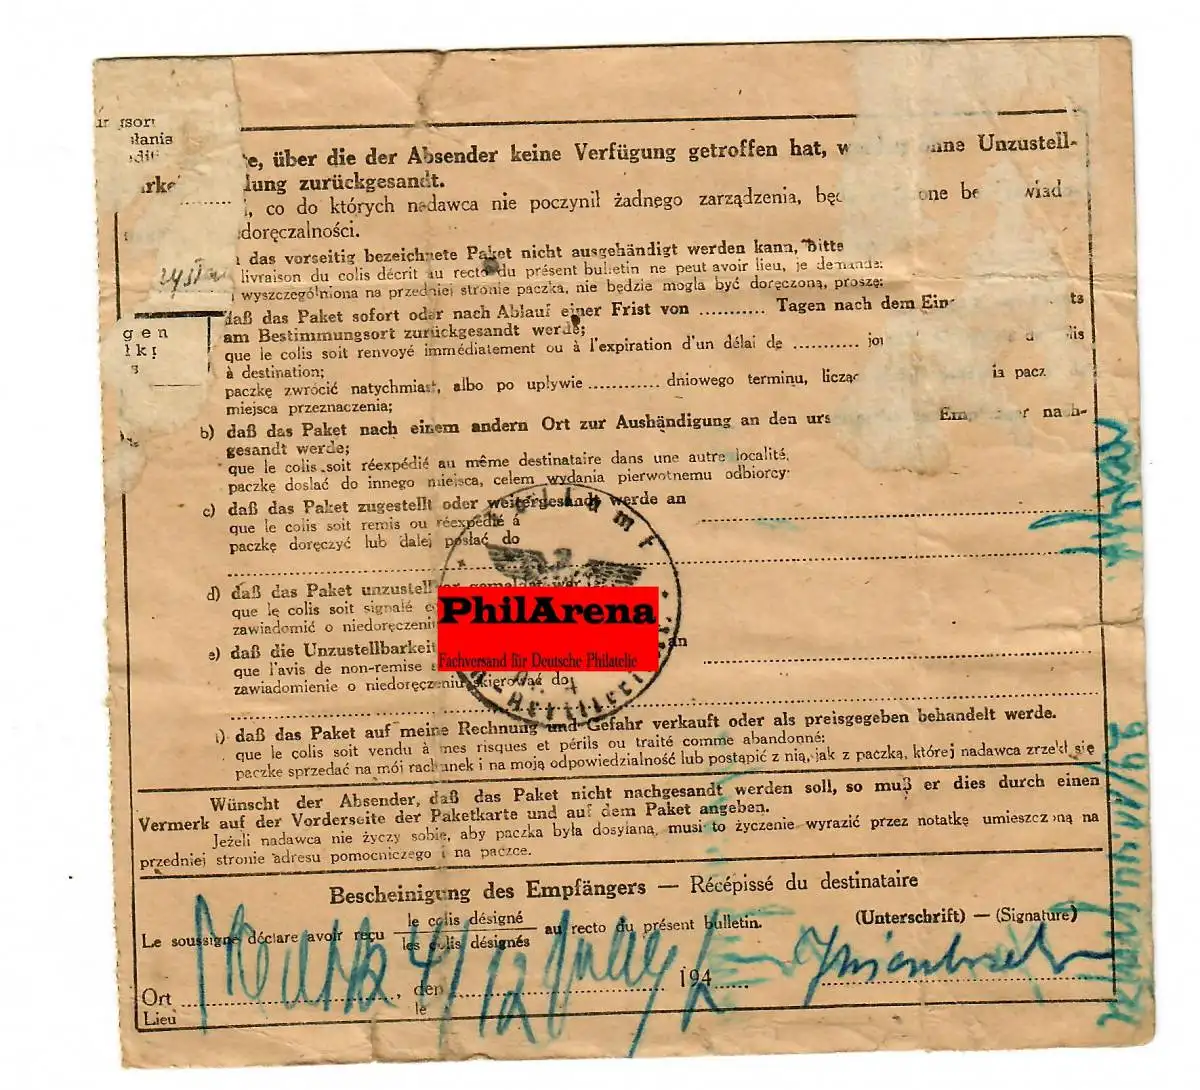 ıngsort
ılania
ıditi
te, über die der Absender keine Verfügung getroffen hat, w ohne Unzustell-
arke lung zurückgesandt.
i, co do których nadawca nie poczynił żadnego zarządzenia, będ one be wiado
doręczalności.
n das vorseitig bezeichnete Paket nicht ausgehändigt werden kann, bitte
livraison du colis décrit au recto du présent bulletin ne peut avoir lieu, je demande:
wyszczególniona na przedniej stronie paczka, nie będzie mogla być doręczoną, proszę:
daß das Paket sofort oder nach Ablauf einer Frist von .......... Tagen nach dem Ein ts
am Bestimmungsort zurückgesandt werde;
que le colis soit renvoyé immédiatement ou à l'expiration d'un délai de .......... jou d lis
à destination;
paczkę zwrócić natychmiast, albo po uplywie .......... dniowego terminu, licząc ia pacz
miejsca przeznaczenia;
gen
łkı
s
b) daß das Paket nach einem andern Ort zur Aushändigung an den urs Empfänger nach-
gesandt werde;
que le colis soit réexpédié au même destinataire dans une autre localité,
paczkę doslać do innego miejsca, celem wydania pierwotnemu odbiorcy:
c) daß das Paket zugestellt oder weitergesandt werde an
que le colis soit remis ou réexpédié á
paczkę doręczyć lub dalej posłać do
d) daß das Paket unzustellbar gemeldet wer
que le colis soit signalé c
zawiadomić o niedoręczeniu
e) daß die Unzustellbarkeit an
que l'avis de non-remise
zawiadomienie o niedoręczeniu skierować do
Zollamt
PhilArena
Fachversand für Deutsche Philatelie
f) daß das Paket auf meine Rechnung und Gefahr verkauft oder als preisgegeben behandelt werde.
que le colis soit vendu à mes risques et périls ou traité comme abandonné:
paczkę sprzedać na mój rachunek i na moją odpowiedzialność lub postąpić z nią, jak z paczką, której nadawca zrzekł się
Wünscht der Absender, daß das Paket nicht nachgesandt werden soll, so muß er dies durch einen
Vermerk auf der Vorderseite der Paketkarte und auf dem Paket angeben.
Jeżeli nadawca nie życzy sobie, aby paczka byla dosylana, musi to życzenie wyrazić przez notatkę umieszczoną na
przedniej stronie adresu pomocniczego i na paczce.
Bescheinigung des Empfängers — Récépissé du destinataire
Le soussigné déclare avoir reçu le colis désigné / les colis désignés au recto du présent bulletin. (Unterschrift) — (Signature)
Ort .........., den .......... 194
Lieu le